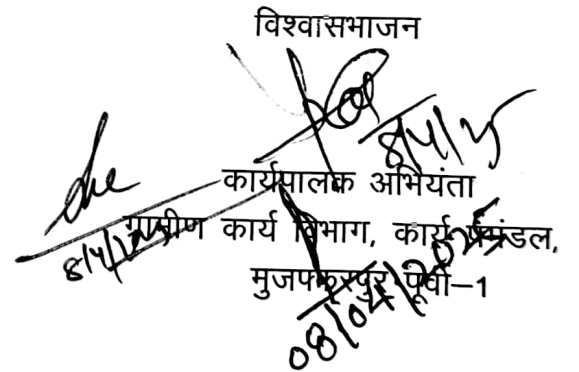 विश्वासभाजन
8/4/25
कार्यपालक अभियंता
ग्रामीण कार्य विभाग, कार्य प्रमंडल,
8/4/2025
मुजफ्फरपुर पूर्वी–1
08/04/2025